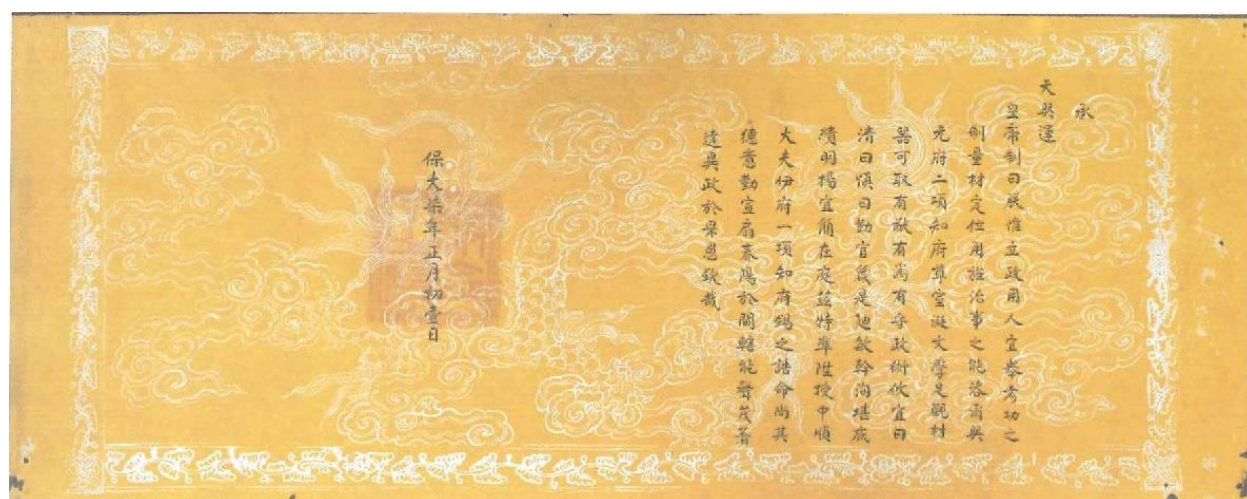 承
天興運
皇帝制曰朕惟立政用人宜叅考功之
制量材定位用旌治事之能咨爾興
元府二項知府文學足觀材
器可取有猷有為有守政術攸宜曰
清曰慎曰勤官箴是廸敏幹洵堪底
績明揚宜簡在庭茲特準陞授中順
大夫伊府一項知府錫之誥命尚其
德意勤宣扇春陽於閫轄能聲茂著
達政於欽哉
保大柒年正月初壹日